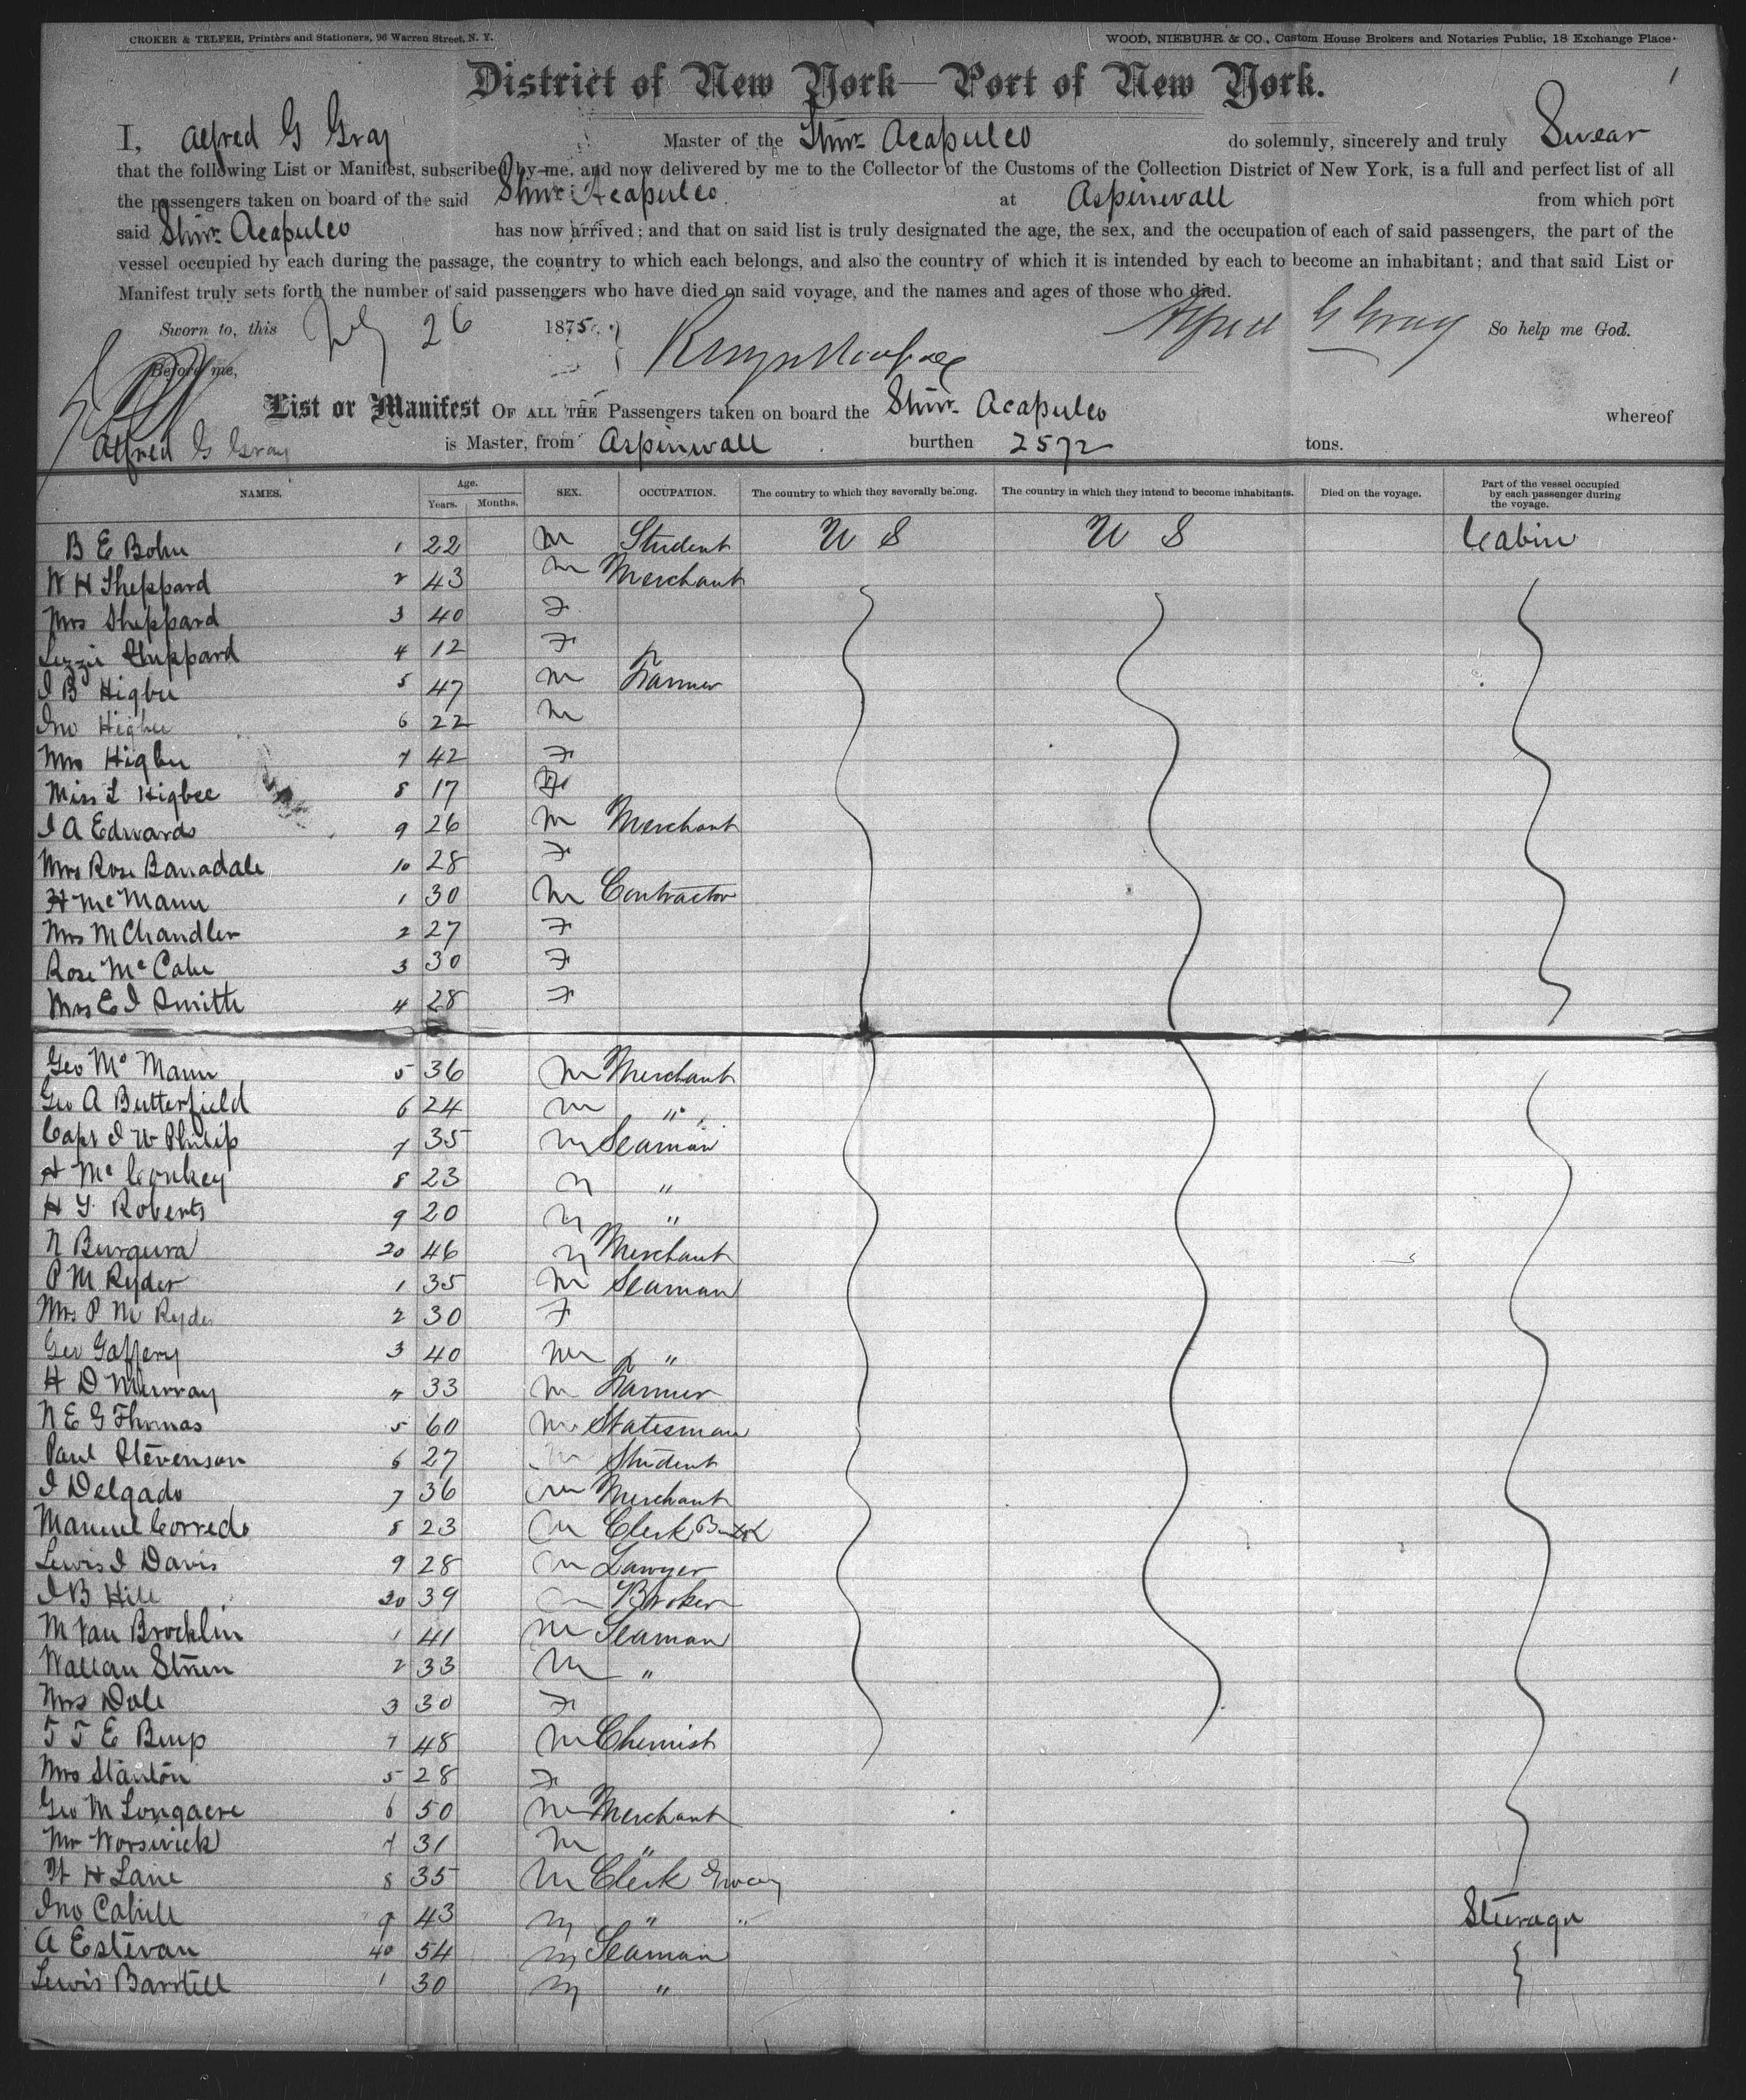 CROKER & TELFER, Printers and Stationers, 96 Warren Street, N. Y. WOOD, NIEBUHR & CO., Custom House Brokers and Notaries Public, 18 Exchange Place.
1
District of New York—Port of New York.
I, Alfred G Gray Master of the Stmr. Acapulco do solemnly, sincerely and truly Swear
that the following List or Manifest, subscribed by me, and now delivered by me to the Collector of the Customs of the Collection District of New York, is a full and perfect list of all
the passengers taken on board of the said Stmr. Acapulco at Aspinwall from which port
said Stmr. Acapulco has now arrived; and that on said list is truly designated the age, the sex, and the occupation of each of said passengers, the part of the
vessel occupied by each during the passage, the country to which each belongs, and also the country of which it is intended by each to become an inhabitant; and that said List or
Manifest truly sets forth the number of said passengers who have died on said voyage, and the names and ages of those who died.
Sworn to, this 26 1875. Alfred G Gray So help me God.
Before me,
List or Manifest OF ALL THE Passengers taken on board the Stmr. Acapulco whereof
Alfred G Gray is Master, from Aspinwall burthen 2572 tons.
NAMES. Age. Years. Months. SEX. OCCUPATION. The country to which they severally belong. The country in which they intend to become inhabitants. Died on the voyage. Part of the vessel occupied by each passenger during the voyage.
B E Bohn 1 22 M Student U S U S Cabin
W H Sheppard 2 43 M Merchant
Mrs Sheppard 3 40 F
Lizzie Sheppard 4 12 F
I B Higbee 5 47 M Farmer
Jno Higbee 6 22 M
Mrs Higbee 7 42 F
Miss L Higbee 8 17 F
I A Edwards 9 26 M Merchant
Mrs Rose Banadale 10 28 F
H McMann 1 30 M Contractor
Mrs M Chandler 2 27 F
Rose McCabe 3 30 F
Mrs E I Smith 4 28 F
Geo McMann 5 36 M Merchant
Geo A Butterfield 6 24 M "
Capt I W Philip 7 35 M Seaman
H McConkey 8 23 M "
H Y Roberts 9 20 M "
N Burgura 20 46 M Merchant
P M Ryder 1 35 M Seaman
Mrs P M Ryder 2 30 F
Geo Gaffery 3 40 M "
H D Murray 4 33 M Farmer
N E G Thomas 5 60 M Statesman
Paul Stevenson 6 27 M Student
I Delgado 7 36 M Merchant
Manuel Corredo 8 23 M Clerk
Lewis I Davis 9 28 M Lawyer
I B Hill 30 39 M Broker
M Van Brocklin 1 41 M Seaman
2 33 M "
Mrs Dale 3 30 F
4 48 M Chemist
Mrs Stanton 5 28 F
Geo M Longacre 6 50 M Merchant
Mr Worswick 7 31 M "
W H Lane 8 35 M Clerk
Jno Cahill 9 43 M " " Steerage
A Estevan 40 54 M Seaman
Lewis Bartell 1 30 M "